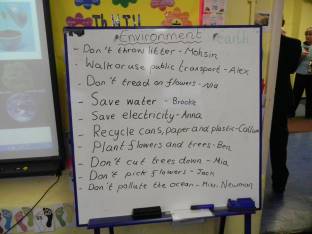 Environment
- Don't throw litter - Mohsin
- Walk or use public transport - Alex
- Don't tread on flowers - Nia
- Save water - Brooke
- Save electricity - Anna
- Recycle cans, paper and plastic - Callum
- Plant flowers and trees - Ben
- Don't cut trees down - Mia
- Don't pick flowers - Jack
- Don't pollute the ocean - Miss Newman